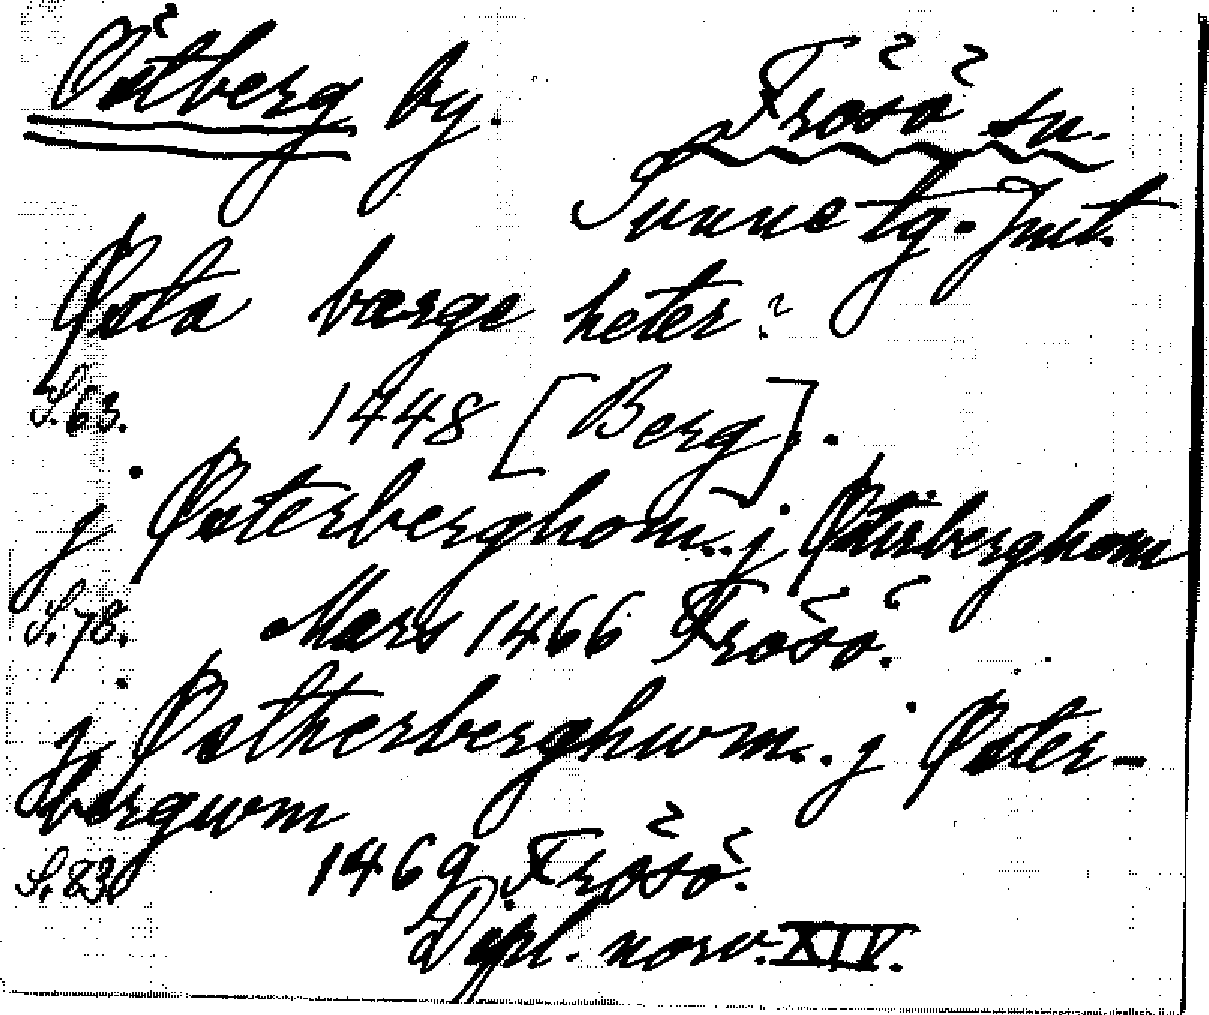 Östberg by.
Frösö sn.
Sunne tg. Jmt.
Østa bærge heter?
S. 63. 1448 [Berg].
j Østerberghom.. j Østerberghom
S. 78. Mars 1466 Frösö.
j Østherberghwm.. j Øster-
bergwm
S. 83. 1469 Frösö.
Dipl. norv. XIV.